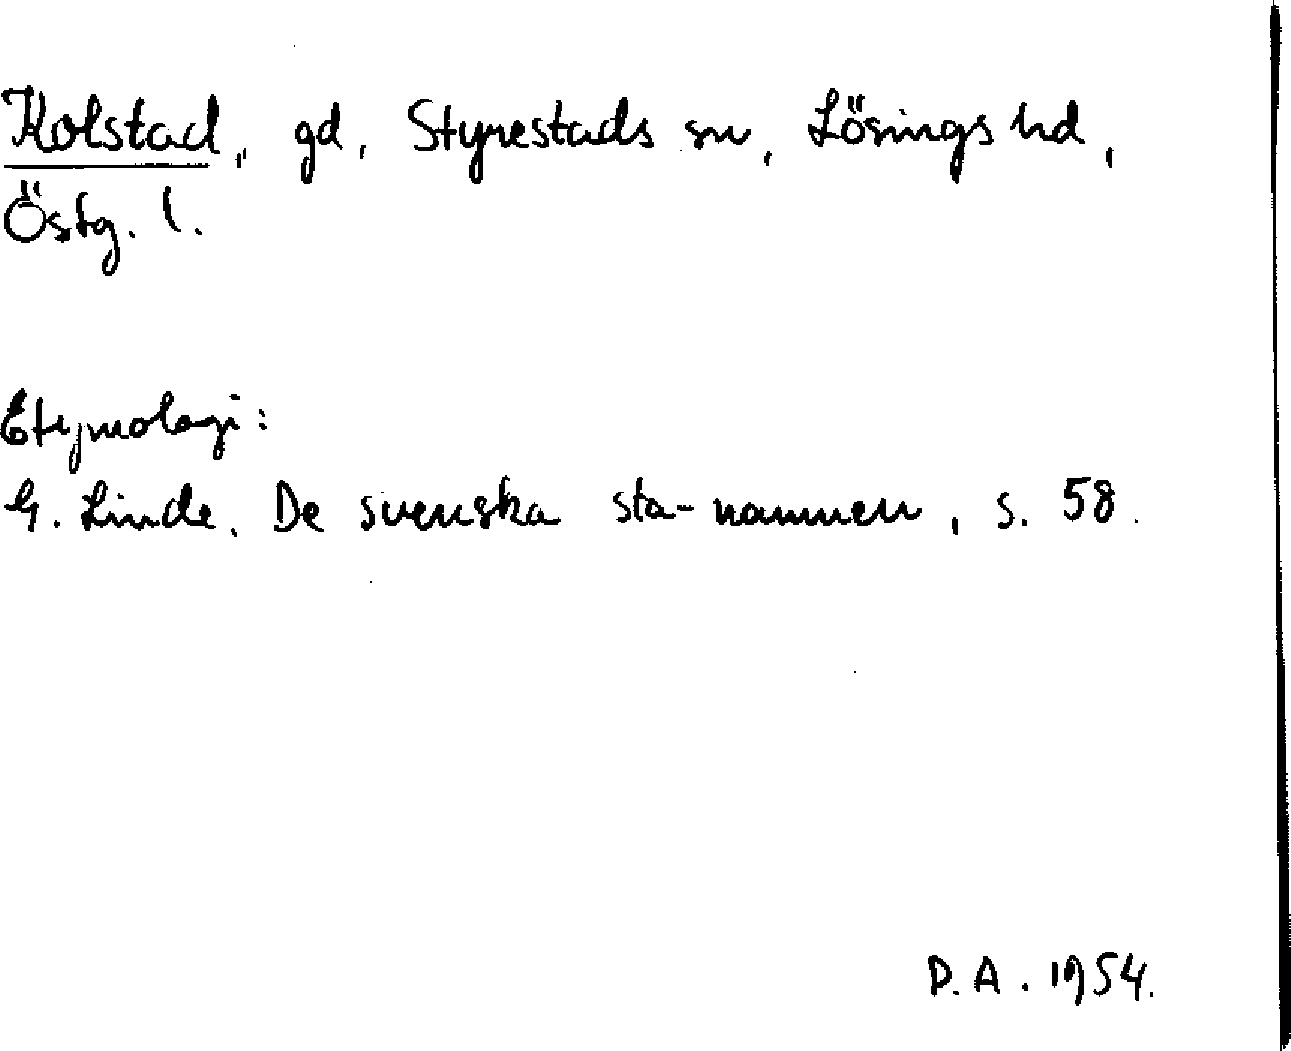 Kolstad, gd, Styrestads sn, Lösings hd,
Östg. l.
Etymologi:
G. Linde. De svenska sta-namnen, s. 58.
D.A. 1954.